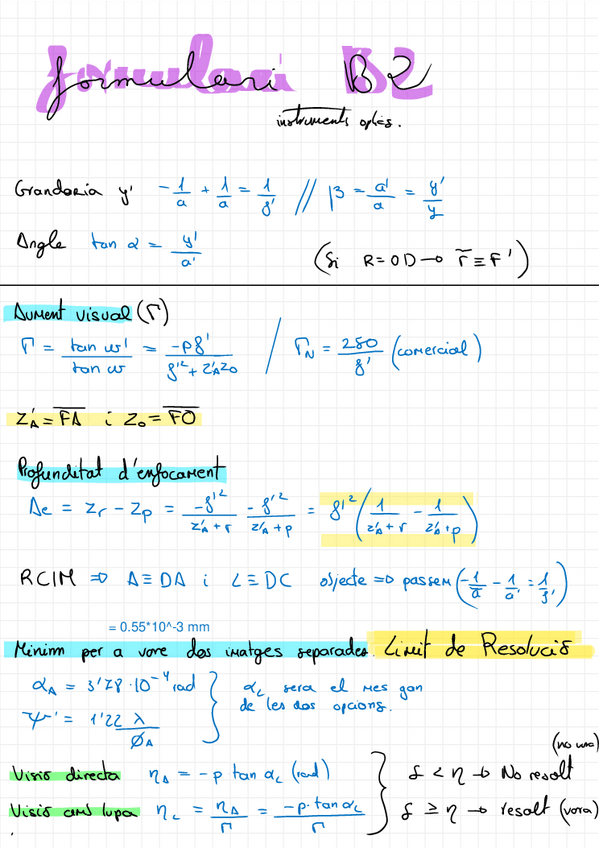 formulari B2
instruments optics.
Grandaria y' -1/a + 1/a = 1/f' // β = a'/a = y'/y
Angle tan α = y'/a' (Si R = 0D → r̃ ≡ F')
Aument visual (Γ)
Γ = tan w'/tan w = -pf'/(f'² + z'A z0) / ΓN = 250/f' (comercial)
z'A = F̅A̅ i z0 = F̅O̅
Profunditat d'enfocament
Δe = zr - zp = -f'²/(z'A + r) - f'²/(z'A + p) = f'² (1/(z'A + r) - 1/(z'A + p))
RCIM ⇒ A ≡ DA i L ≡ DC objecte ⇒ passem (-1/a - 1/a' = 1/f')
= 0.55*10^-3 mm
Minim per a vore dos imatges separades. Limit de Resolució
αA = 3'78·10⁻⁴ rad } αL sera el mes gan
de les dos opcions.
Ψ' = 1'22 λ/ØA
(no vora)
Visió directa ηA = -p tan αL (rad) } δ < η → No resolt
Visió amb lupa ηL = ηA/Γ = -p·tan αL/Γ δ ≥ η → resolt (vora)